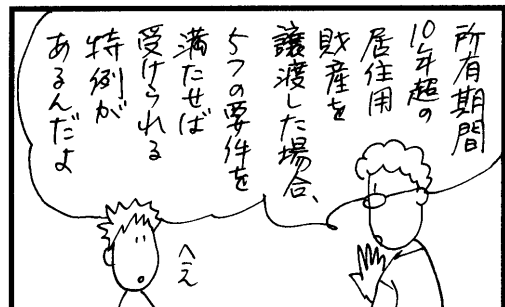 所有期間
10年超の
居住用
財産を
譲渡した場合、
5つの要件を
満たせば
受けられる
特例が
あるんだよ
へえ